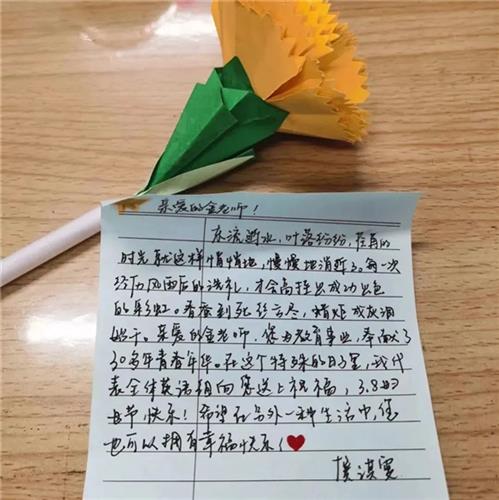 亲爱的金老师！
东流逝水，叶落纷纷，荏苒的
时光就这样悄悄地，慢慢地消逝了。每一次
经历风雨后的洗礼，才会高挂出成功出色
的彩虹。春蚕到死丝方尽，蜡炬成灰泪
始干。亲爱的金老师，您为教育事业，奉献了
30多年青春年华。在这个特殊的日子里，我代
表全体英语组向您送上祝福，3.8妇
女节快乐！希望在另外一种生活中，您
也可以拥有幸福快乐！